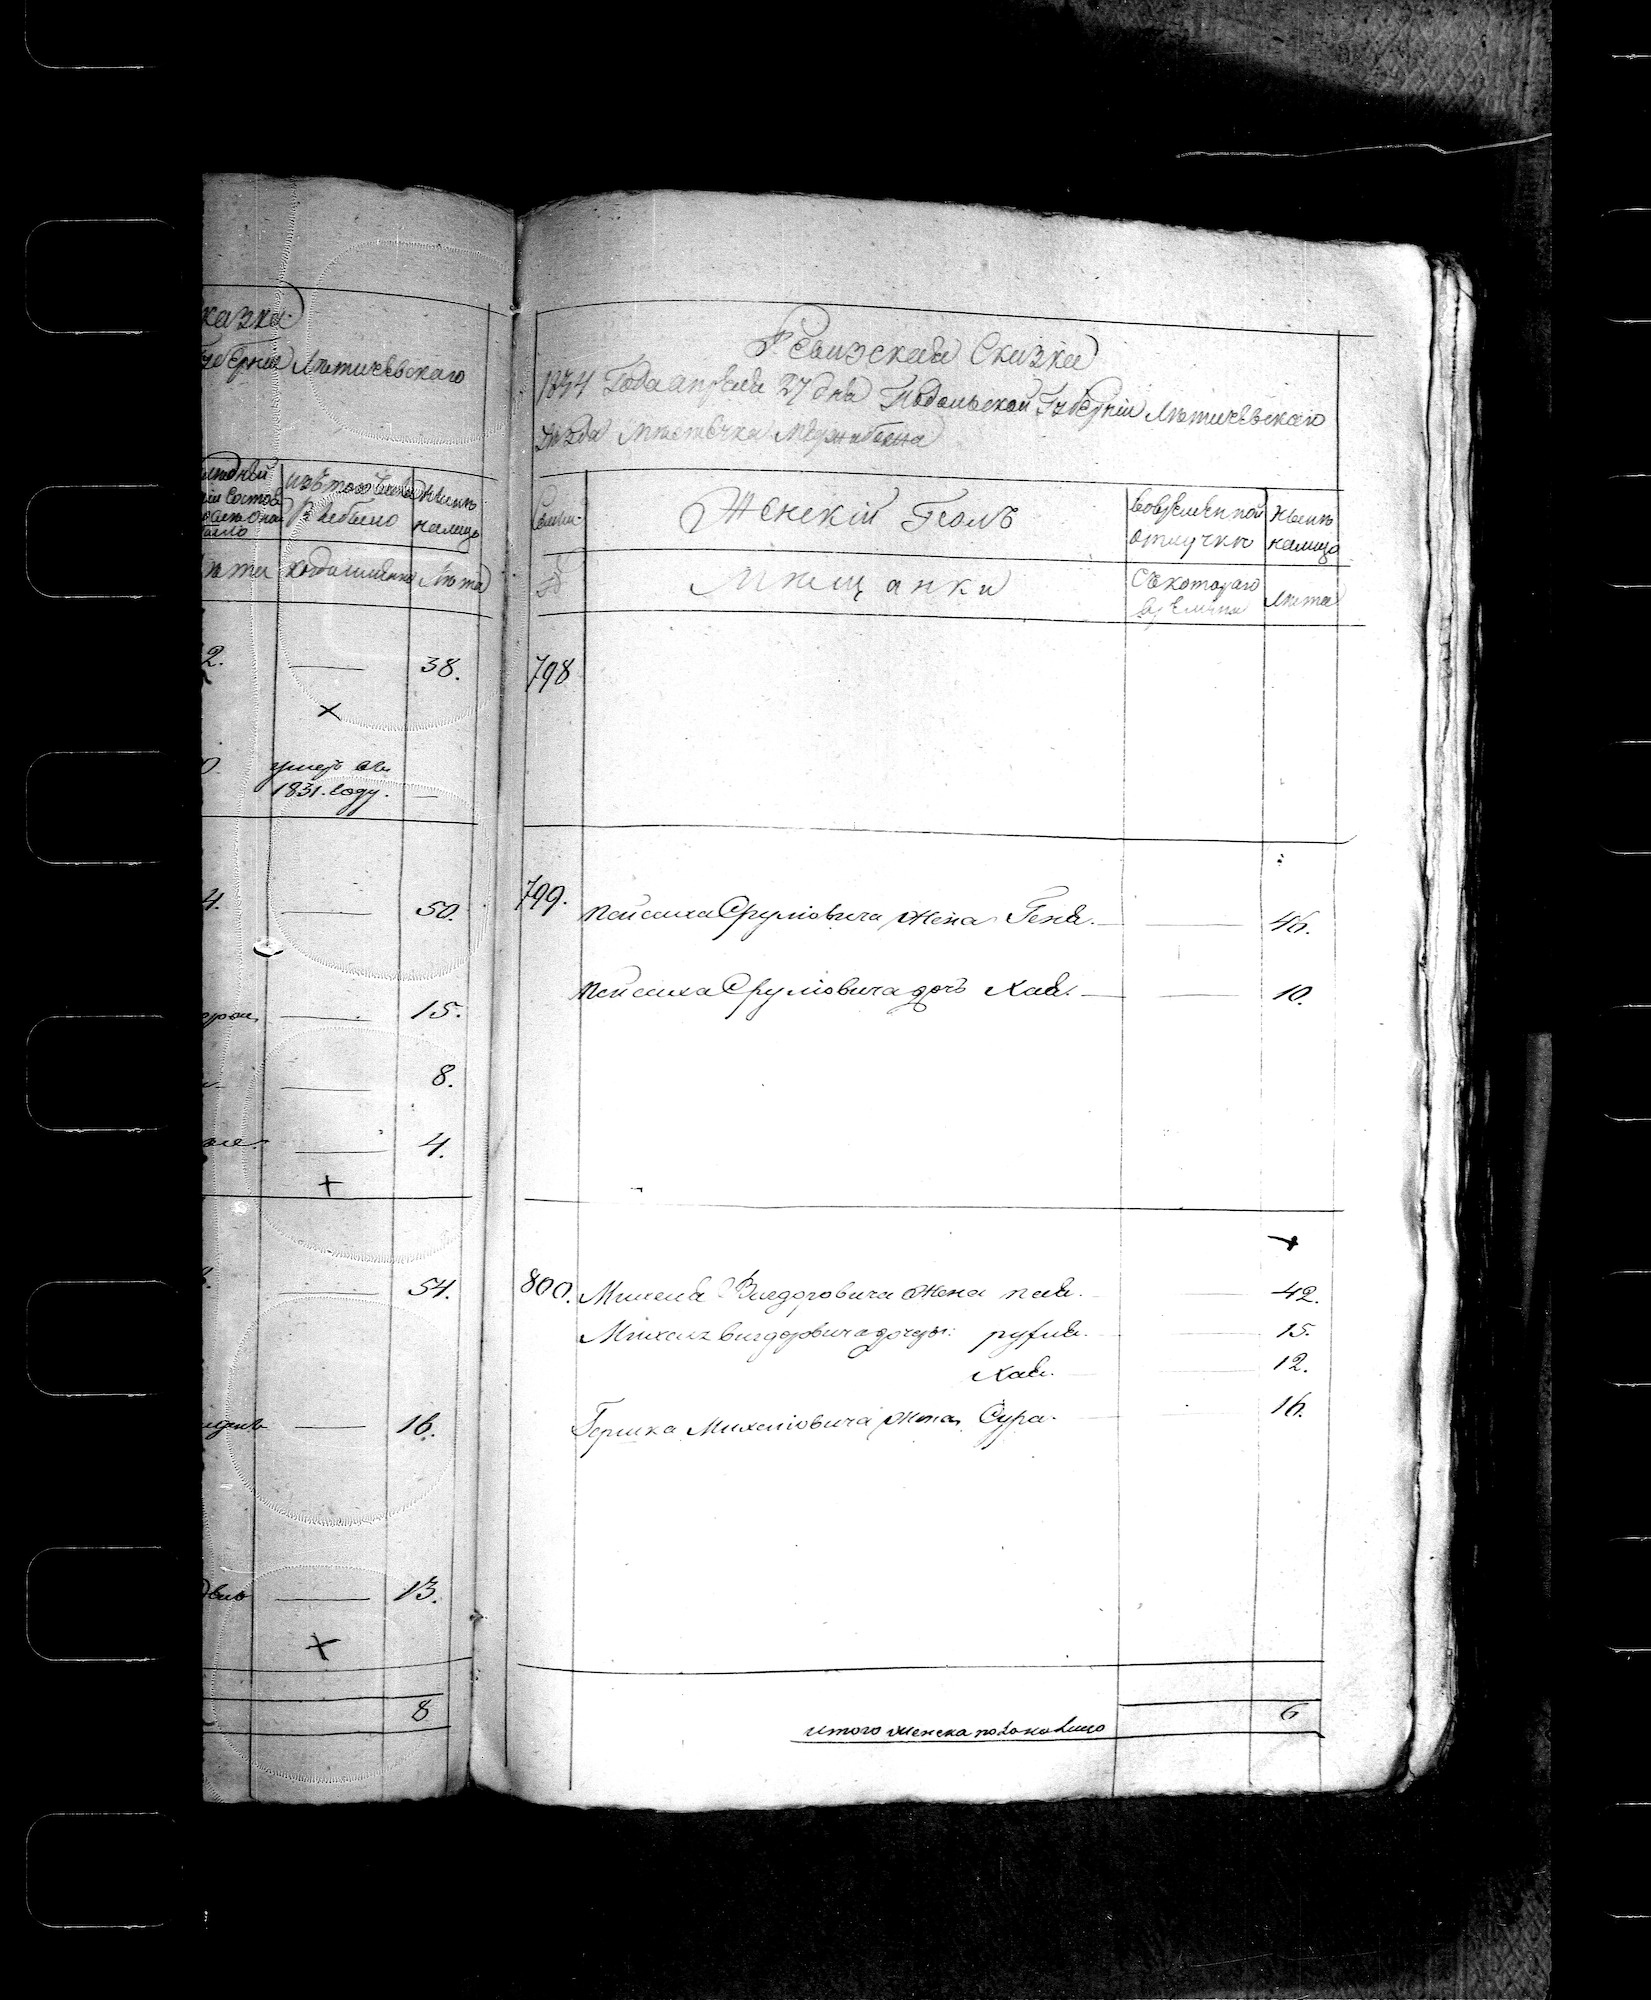 казка
Губерніи Летичевскаго
изъ того числа
Нынѣ
выбыло
налицо
когда именно
Лѣта
2.
38.
умеръ въ
1831. году.
4.
50.
15.
8.
4.
54.
16.
13.
8
Ревизская Сказка
1834 Года апреля 27 дня Подольской Губерніи Летичевскаго
уезда Местечка Межибожа
Семьи
Женскій Полъ
Вовременной
отлучке
Ныне
налицо
№
Мещанки
Съ котораго
времени
Лета
798
799.
Пейсаха Сруліовича жена Геня. — 46.
Пейсаха Сруліовича дочь Хая. — 10.
800.
Михеля Вигдоровича жена пая. 42.
Михеля вигдоровича дочери: руфля. 15.
Хая. 12.
Гершка Михеліовича жена Сура. 16.
итого женска пола налицо 6